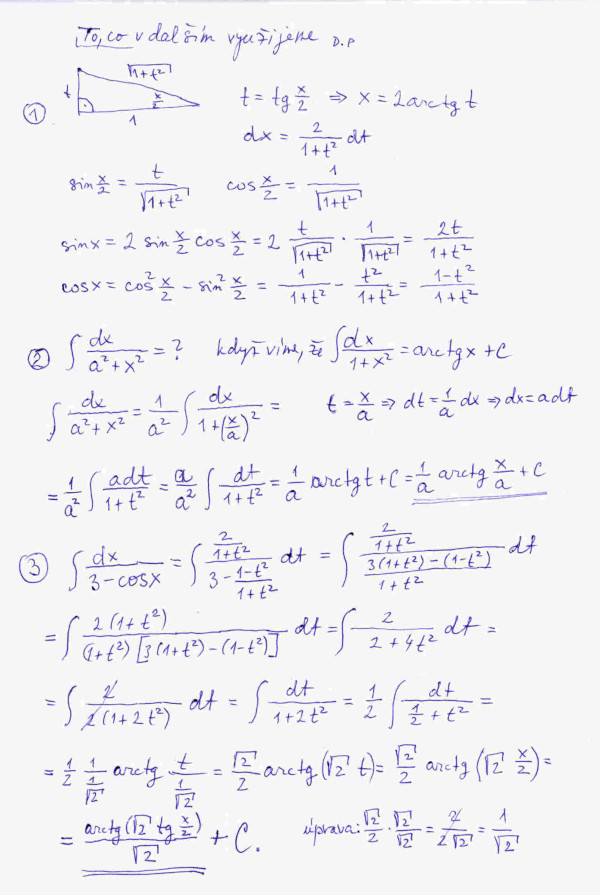 To, co v dalším využijeme D.P
√(1+t²)
t x/2 1
① t = tg x/2 ⇒ x = 2 arctg t
dx = 2/(1+t²) dt
sin x/2 = t/√(1+t²) cos x/2 = 1/√(1+t²)
sin x = 2 sin x/2 cos x/2 = 2 t/√(1+t²) · 1/√(1+t²) = 2t/(1+t²)
cos x = cos² x/2 - sin² x/2 = 1/(1+t²) - t²/(1+t²) = (1-t²)/(1+t²)
② ∫ dx/(a²+x²) = ? když víme, že ∫ dx/(1+x²) = arctg x + C
∫ dx/(a²+x²) = 1/a² ∫ dx/(1+(x/a)²) = t = x/a ⇒ dt = 1/a dx ⇒ dx = a dt
= 1/a² ∫ a dt/(1+t²) = a/a² ∫ dt/(1+t²) = 1/a arctg t + C = 1/a arctg x/a + C
③ ∫ dx/(3-cos x) = ∫ (2/(1+t²))/(3-(1-t²)/(1+t²)) dt = ∫ (2/(1+t²))/((3(1+t²)-(1-t²))/(1+t²)) dt
= ∫ 2(1+t²)/((1+t²)[3(1+t²)-(1-t²)]) dt = ∫ 2/(2+4t²) dt =
= ∫ 2/(2(1+2t²)) dt = ∫ dt/(1+2t²) = 1/2 ∫ dt/(1/2+t²) =
= 1/2 1/(1/√2) arctg t/(1/√2) = √2/2 arctg(√2 t) = √2/2 arctg(√2 x/2) =
= arctg(√2 tg x/2)/√2 + C. úprava: √2/2 · √2/√2 = 2/(2√2) = 1/√2